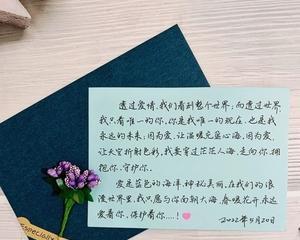 透过爱情,我们看到整个世界;而透过世界,
我只有唯一的你,你是我唯一的现在,也是我
永远的未来;因为爱,让温暖充盈心海,因为爱,
让天空折射色彩,我要穿过茫茫人海,走向你,拥
抱你,守护你。
爱是蓝色的海洋,神秘美丽,在我们的浪
漫世界里,我只愿与你面朝大海,春暖花开,永远
爱着你,保护着你……!
2022年5月20日
Especially